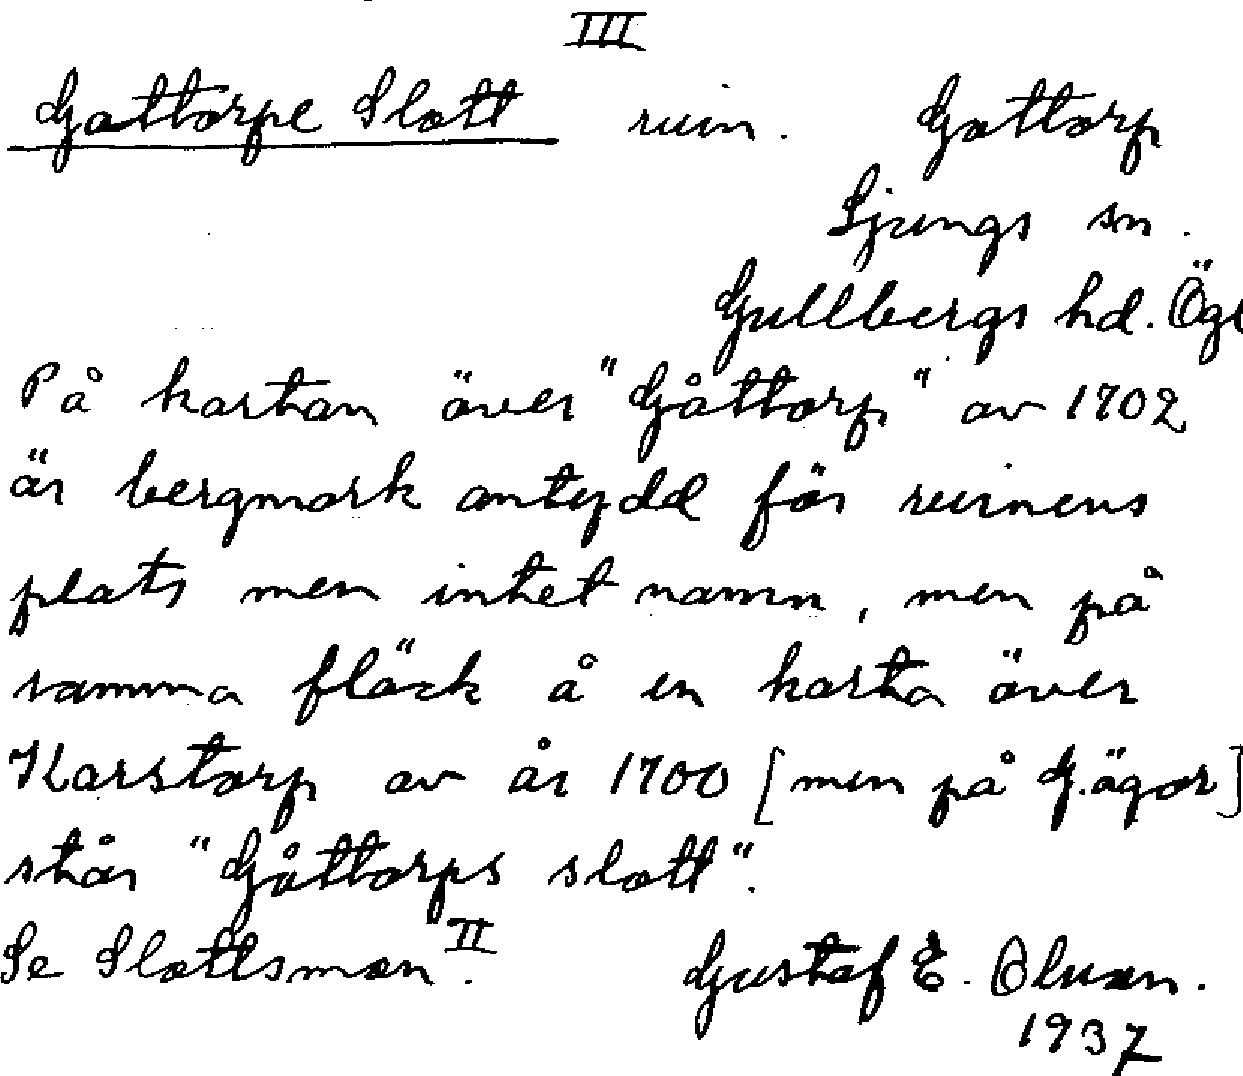 III
Gottorps Slott ruin. Gottorp
Ljungs sn.
Gullbergs hd. Ögl
På kartan över "Gåttorp" av 1702
är bergmark antydd för ruinens
plats men intet namn, men på
samma fläck å en karta över
Karstorp av år 1700 [men på G. ägor]
står "Gåttorps slott".
Se Slottsmon II.
Gustaf E.
1937